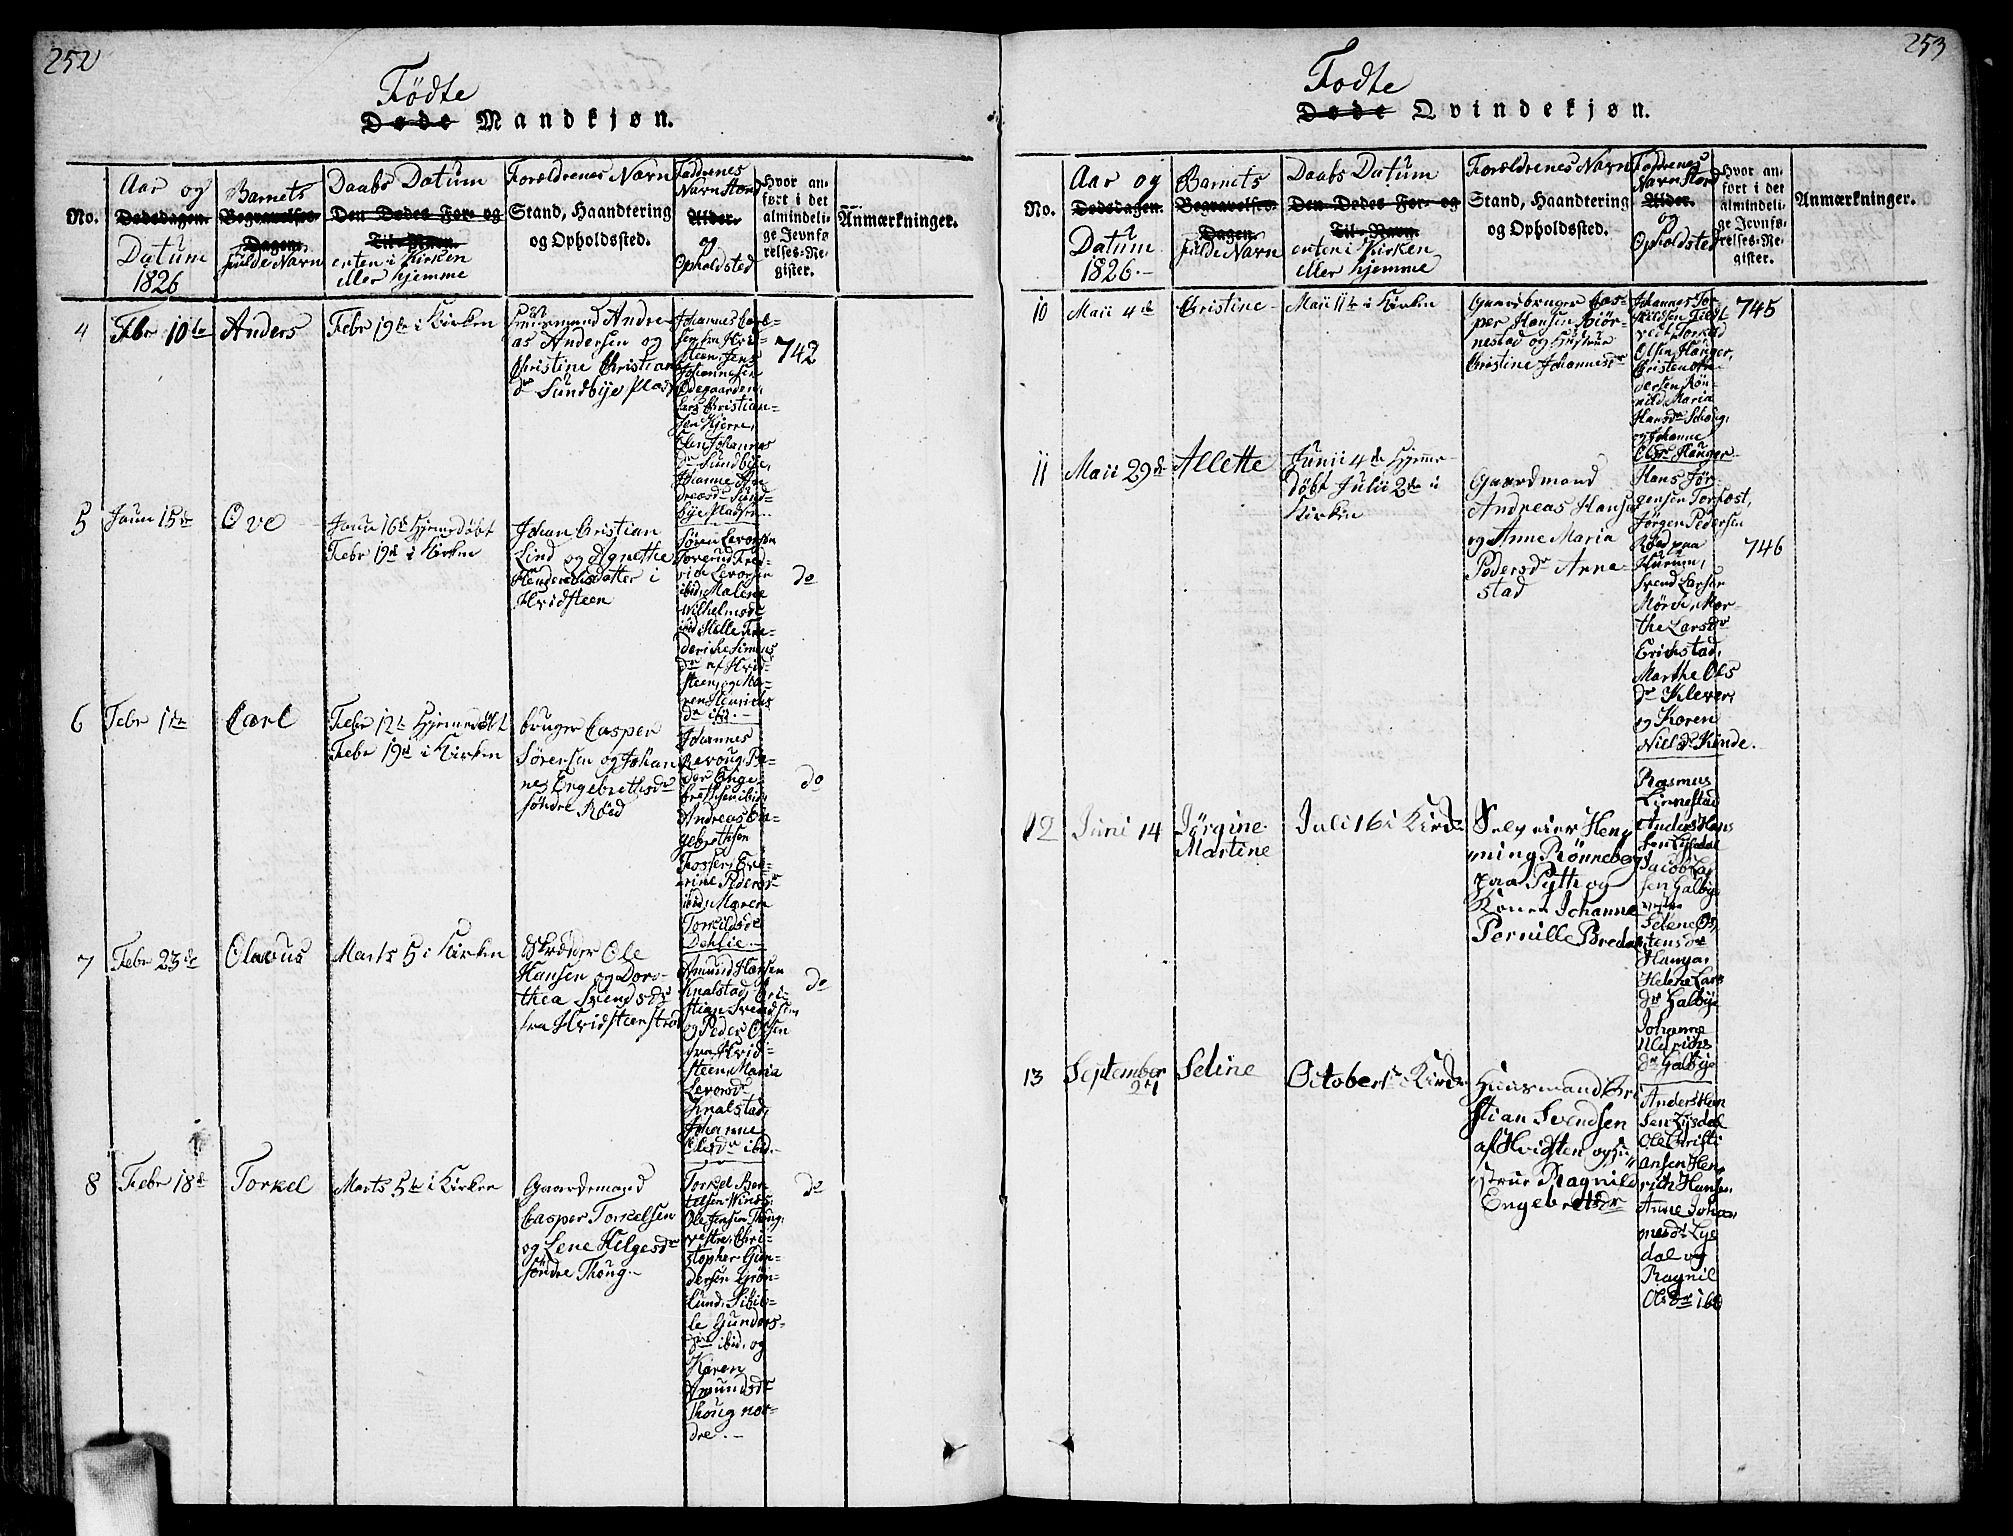 252
Födte
Døde Mandkjøn.
No.
Aar og
Dødsdagen.
Datum
1826
Barnets
Begravelses-
Dagen.
fulde Navn
Daabs Datum
Den Dødes For- og
Til-Navn.
enten i Kirken
eller hjemme
Forældrenes Navn
Stand, Haandtering
og Opholdssted.
Faddrenes
Navn Stand
Alder.
og
Opholdsted
Hvor an-
ført i det
almindeli-
ge Jevnfø-
relses-Re-
gister.
Anmærkninger.
4
Febr 10de
Anders
Febr 19de i Kirken
Andre-
as Andersen og
Christine Christians
dr Sundbye Plads
Johannes Carl-
sen fra Hvid-
steen, Jens
Johannesen
Ødegaarden,
Lars Christian-
sen Kjerre,
Elen Johannes
dr Sundbye,
Johanne An-
dreasdr Sund-
bye Pladsen.
742
5
Janu 15de
Ove
Janu 16de Hjemmedøbt
Febr 19de i Kirken
Johan Christian
Lind og Agnethe
Hendrichsdatter i
Hvidsteen
Sören Levorsen
Toverud, Fred-
rich Levorsen
ibid, Malene
Wilhelmsdr
ibid, Helle Fre-
deriche Simens
dr af Hvid-
steen, og Ma-
ren Henrichs
dr ibid.
do
6
Febr 1te
Carl
Febr 12te Hjemmedöbt
Febr 19de i Kirken
bruger Casper
Sörensen og Johan-
ne Engebrethsdr
söndre Röed
Johannes
Revoug, Pe-
der Enge-
brethsen ibid,
Andreas En-
gebrethsen
Fosser,
Pedersdr
ibid, Maren
Torkildsdr
Dehlie.
do
7
Febr 23de
Olavus
Marts 5 i Kirken
Skræder Ole
Hansen og Doro-
thea Svendsdr
fra Hvidsteenströd
Amund Hansen
Knalstad, Cri-
stian Svendsen
og Peder Olsen
fra Hvid-
steen, Maria
Leversdr
Knalstad,
Johanne
Olesdr ibid.
do
8
Febr 18de
Torkel
Marts 5te i Kirken
Gaardemand
Casper Torkelsen
og Lene Helgesdr
söndre Thoug.
Torkel Ber-
telsen Winds,
Ole Jensen Thoug,
vestre, Chri-
stopher Gun-
dersen Grön-
lund, Sibil-
le Gunders-
dr ibid, og
Karen
Amundsdr
Thoug nor-
dre.
do
253
Fodte
Døde Qvindekjøn.
No.
Aar og
Dødsdagen.
Datum
1826.
Barnets
Begravelses-
Dagen.
fulde Navn
Daabs Datum
Den Dødes For- og
Til-Navn.
enten i Kirken
eller hjemme
Forældrenes Navn
Stand, Haandtering
og Opholdssted.
Faddrenes
Navn Stand
Alder.
og
Opholdsted
Hvor an-
ført i det
almindeli-
ge Jevnfø-
relses-Re-
gister.
Anmærkninger.
10
Maii 4de
Christine
Maii 11te i Kirken
Gaardbruger Cas-
per Hansen Biör-
nestad og Hustrue
Christine Johannesdr
Johannes Tor-
kildsen
Torkild
Olsen Haüger,
Christen An-
dersen Rön-
nild, Maria
Hansdr
og Johanne
Olsdr Haüger
745
11
Maii 29de
Allette
Junii 4de Hjemme-
döbt Julii 2de i
Kirken
Gaardmand
Andreas Hansen
og Anne Maria
Pedersdr Arne-
stad
Hans Jör-
gensen Torfast,
Jörgen Pedersen
Röed paa
Hurum,
Svend Larsen
Mörch, Mar-
the Larsdr
Erichstad,
Marthe Ols
dr Klever,
og Karen
Nilsdr Kinde.
746
12
Juni 14
Jörgine
Martine
Juli 16 i Kirken
Selveier Hen-
ning Rönneberg
paa Pytt og
Konen Johanne
Pernille Breda
Rasmus
Linnestad
Anders Han
sen Lysdal
Jacob Lar
sen Galbye
vestre
Helene
Haugar
Helene Lars
dr Galbye
Johanne
Uldrichs
dr Galbye
13
September
21
Seline
October 1ste i Kirken
Huusmand Cri
stian Svendsen
af Hvidsten og hu
strue Ragnild
Engebretsdr
Anders Han
sen Lysdal
Ole Christi
ansen Hen
rich Hansen
Anne Johan
nesdr Lys
dal og
Ragnil
Olsdr ibd